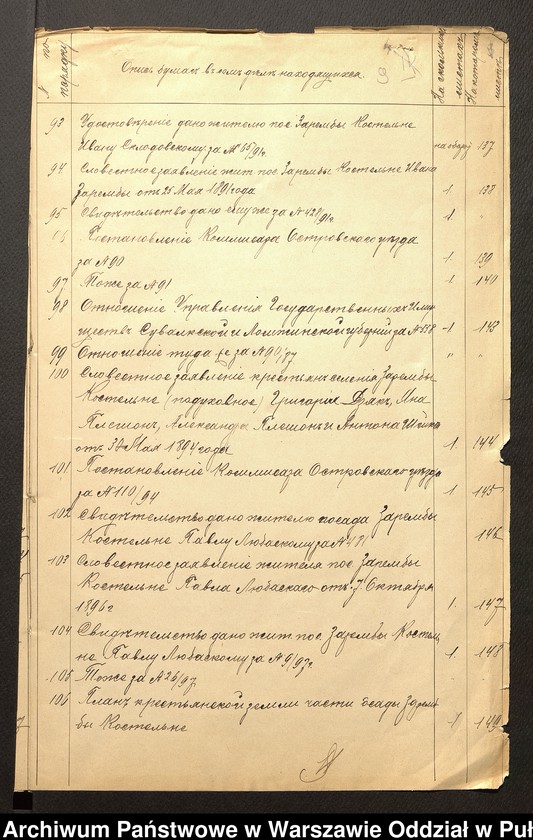 № по порядку
Опись бумагъ въ семъ дѣлѣ находящихся
На сколькихъ листахъ
На которомъ листѣ
93 Удостовѣреніе дано жителю пос. Зарембы Костельне
Ивану Склодовскому за № 55/91г. на обор. 137
94 Словестное заявленіе жит. пос. Зарембы Костельне Ивана
Зарембы отъ 25 Мая 1891 года 1 138
95 Свидѣтельство дано ему же за № 428/91г. 1. "
Постановленіе Коммисара Островскаго уѣзда
за № 90 1 139
97 Тоже за № 91 1 140
98 Отношеніе Управленія Государственныхъ Иму
ществъ Сувалкской и Ломжинской губерній за № 558 1 143
99 Отношеніе туда же за № 90/97 " "
100 Словестное заявленіе крестьянъ селенія Зарембы
Костельне (подуховное) Григорія Дякъ, Яна
Плешонъ, Александры Плешонъ и Антона
отъ 30 Мая 1894 года 1. 144
101 Постановленіе Коммисара Островскаго уѣзда
за № 110/94 1 145
102 Свидѣтельство дано жителю посада Зарембы
Костельне Павлу Любаскому за № 421 146
103 Словестное заявленіе жителя пос. Зарембы
Костельне Павла Любаскаго отъ 7 Октября
1896 г 1. 147
104 Свидѣтельство дано жит. пос. Зарембы Костель
не Павлу Любаскому за № 9/97г. 1. 148
105 Тоже за № 26/97
106 Планъ крестьянской земли части осады Зарем
бы Костельне 1 149
Archiwum Państwowe w Warszawie Oddział w Puł